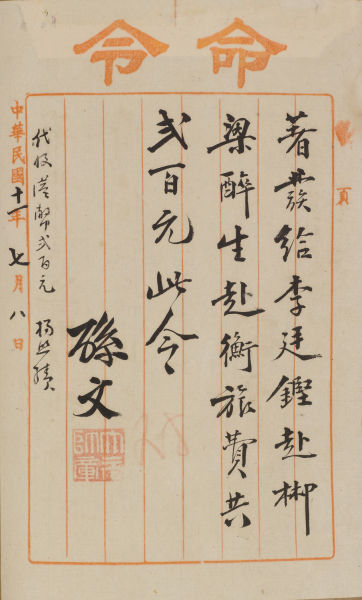 命令
頁
著發給李廷鏗赴郴
梁醉生赴衡旅費共
弍百元此令
孫文
大元帥章
代收港幣弍百元 楊熙績
中華民國十一年七月八日